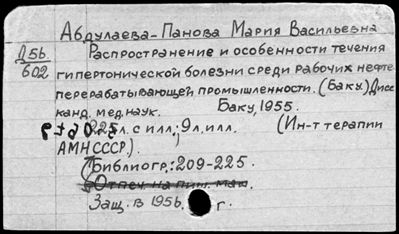 Абдулаева-Панова Мария Васильевна
Д56
602
Распространение и особенности течения
гипертонической болезни среди рабочих нефте
перерабатывающей промышленности. (Баку.) Дисс
канд. мед. наук. Баку, 1955.
225 л. с илл.; 9 л. илл. (Ин-т терапии
АМН СССР.).
Библиогр.: 209-225.
Отпеч. на пиш. маш.
Защ. в 1956. г.